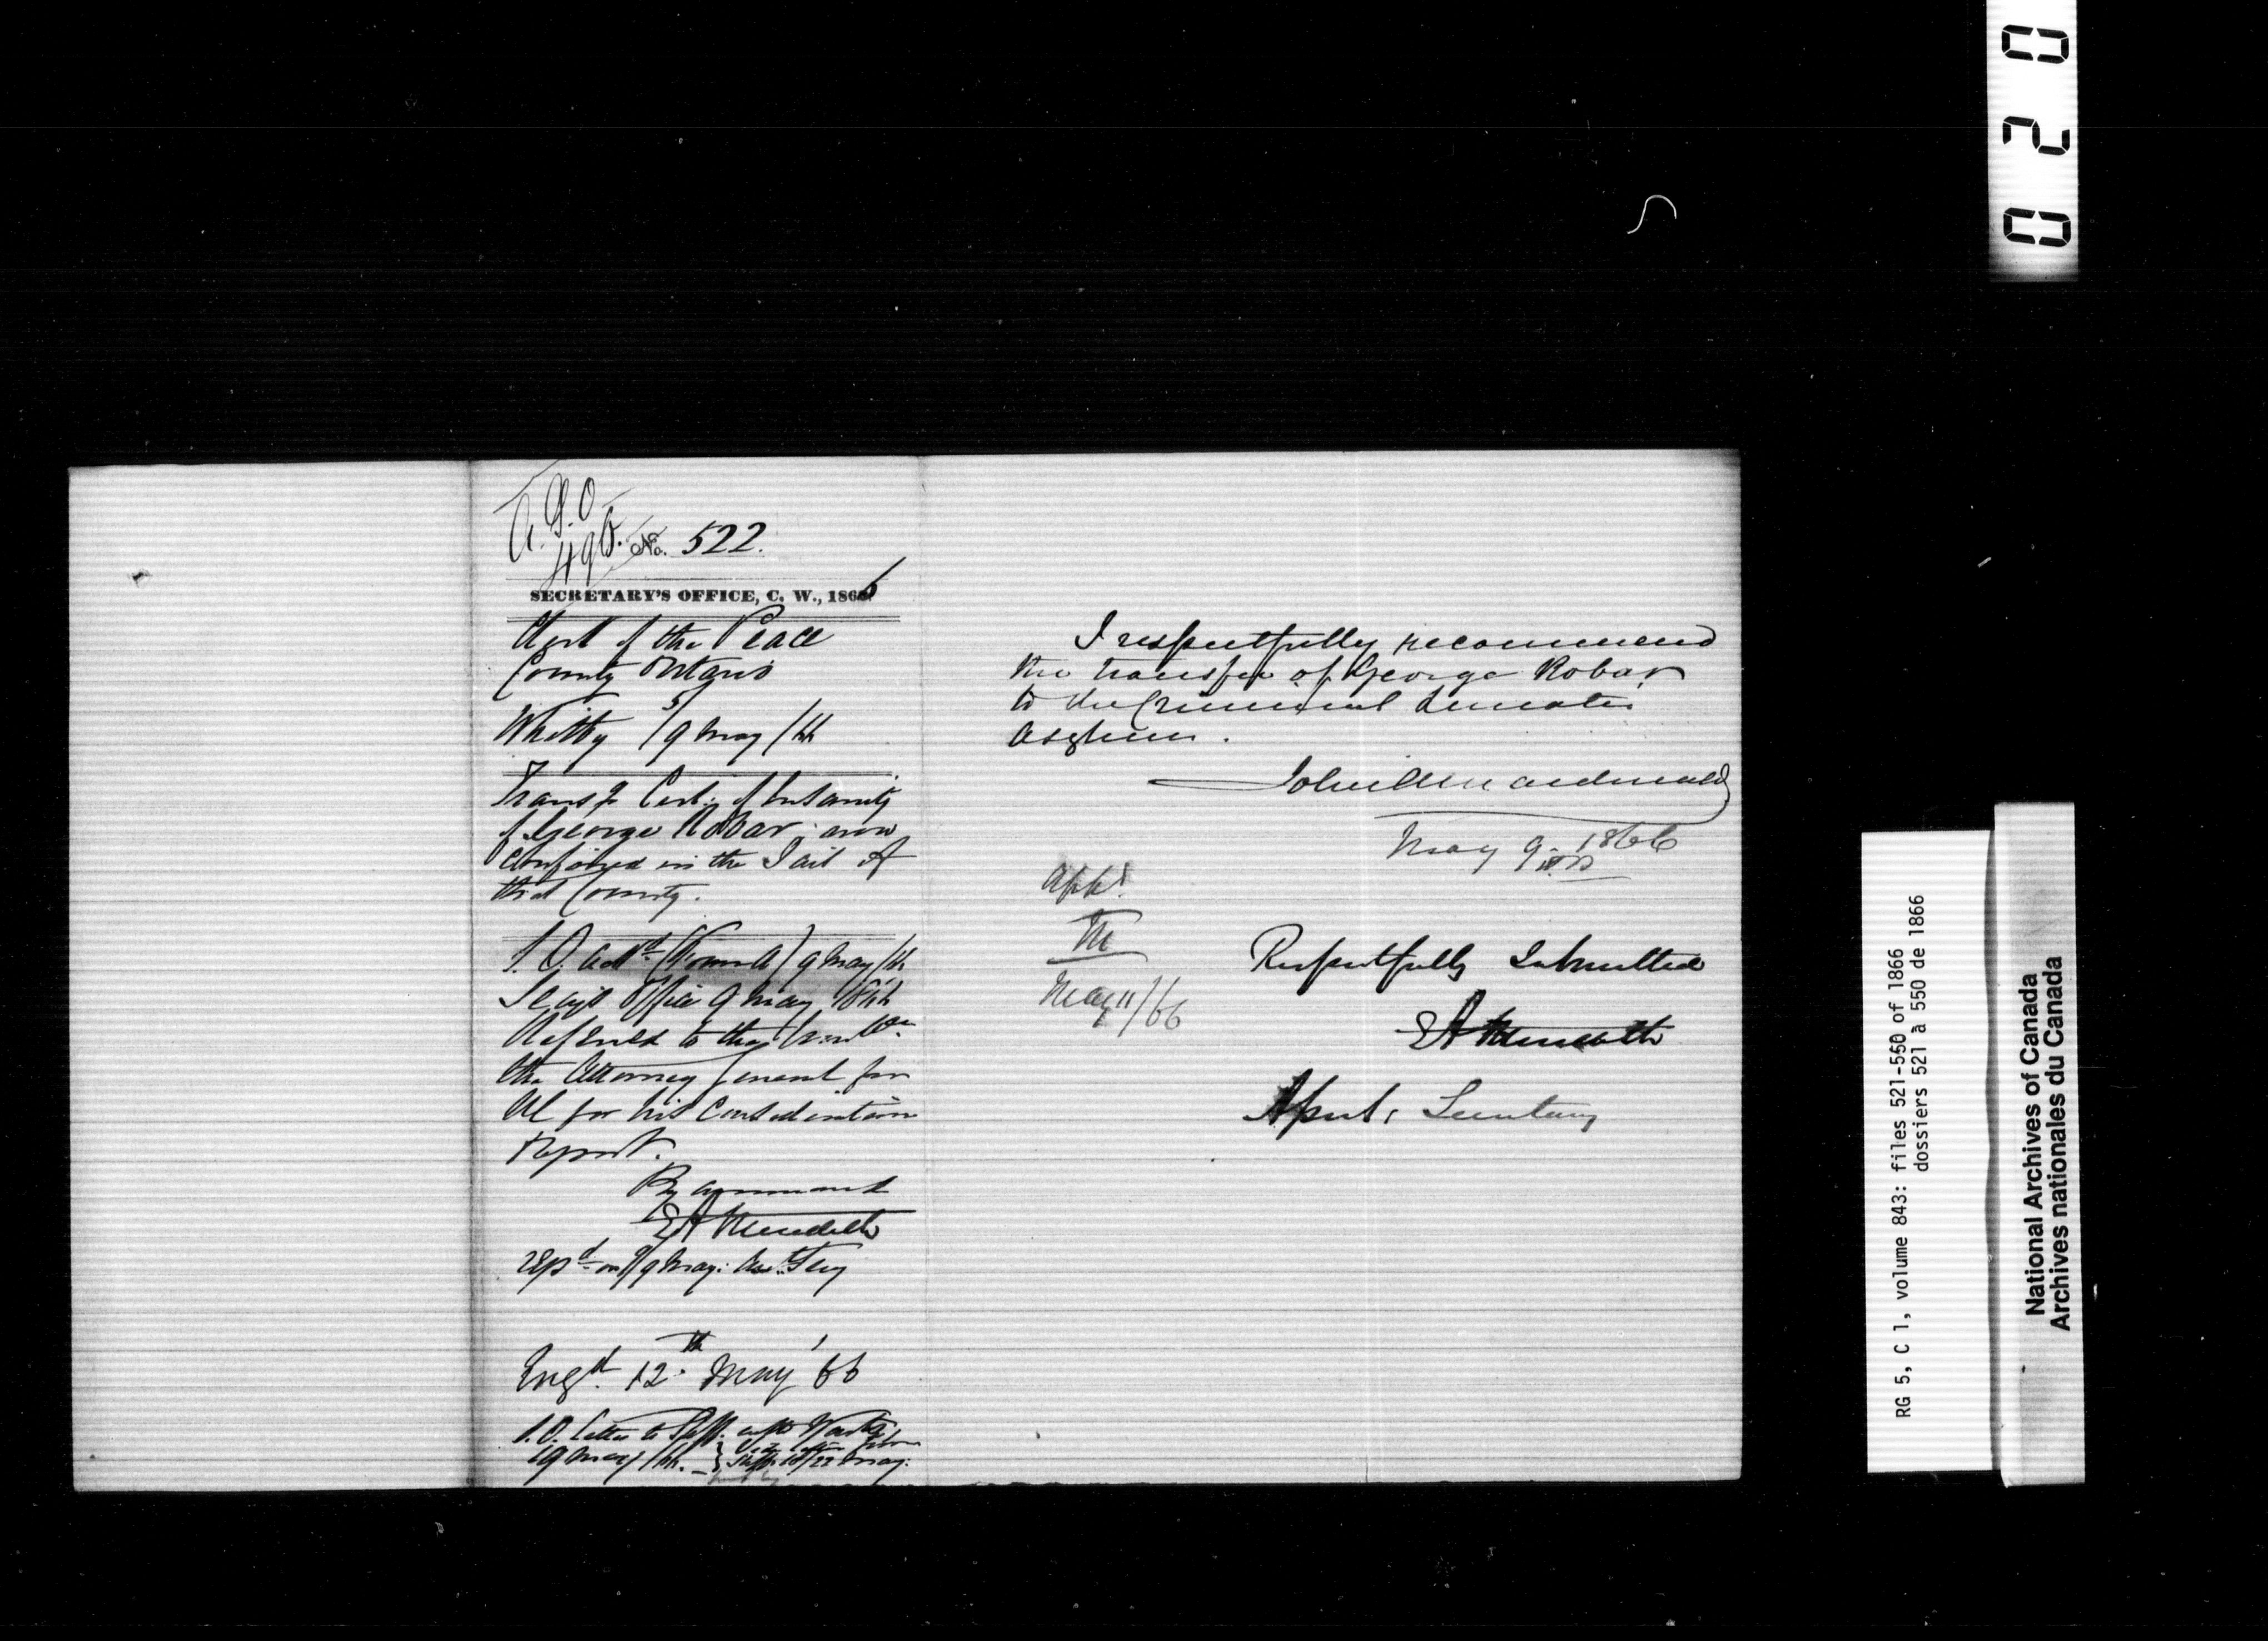 A.G.O
496. No. 522.
SECRETARY'S OFFICE, C. W., 1866
Clerk of the Peace
County Ontario
Whitby 5/9 May /66
Transg Cert. of Insanity
of George Robar; now
confined in the Jail of
that County.
S.O. ackd (Form A) 9 May /66
Secy's Office 9 May 1866
Referred to the Honble
the Attorney General for
UC for his Consideration
Report.
By command
EA Meredith
on 9 May: Asst Secy
Engd. 12th May '66
S.O. Letter to Shff. with
19 May /66. 22 May.
I respectfully recommend
the transfer of George Robar
to the Criminal Lunatic
Asylum.
John A Macdonald
May 9. 1866
Appd.
M
May 11/66
Respectfully Submitted
EA Meredith
Asst. Secretary
020
RG 5, C 1, volume 843: files 521-550 of 1866
dossiers 521 à 550 de 1866
National Archives of Canada
Archives nationales du Canada